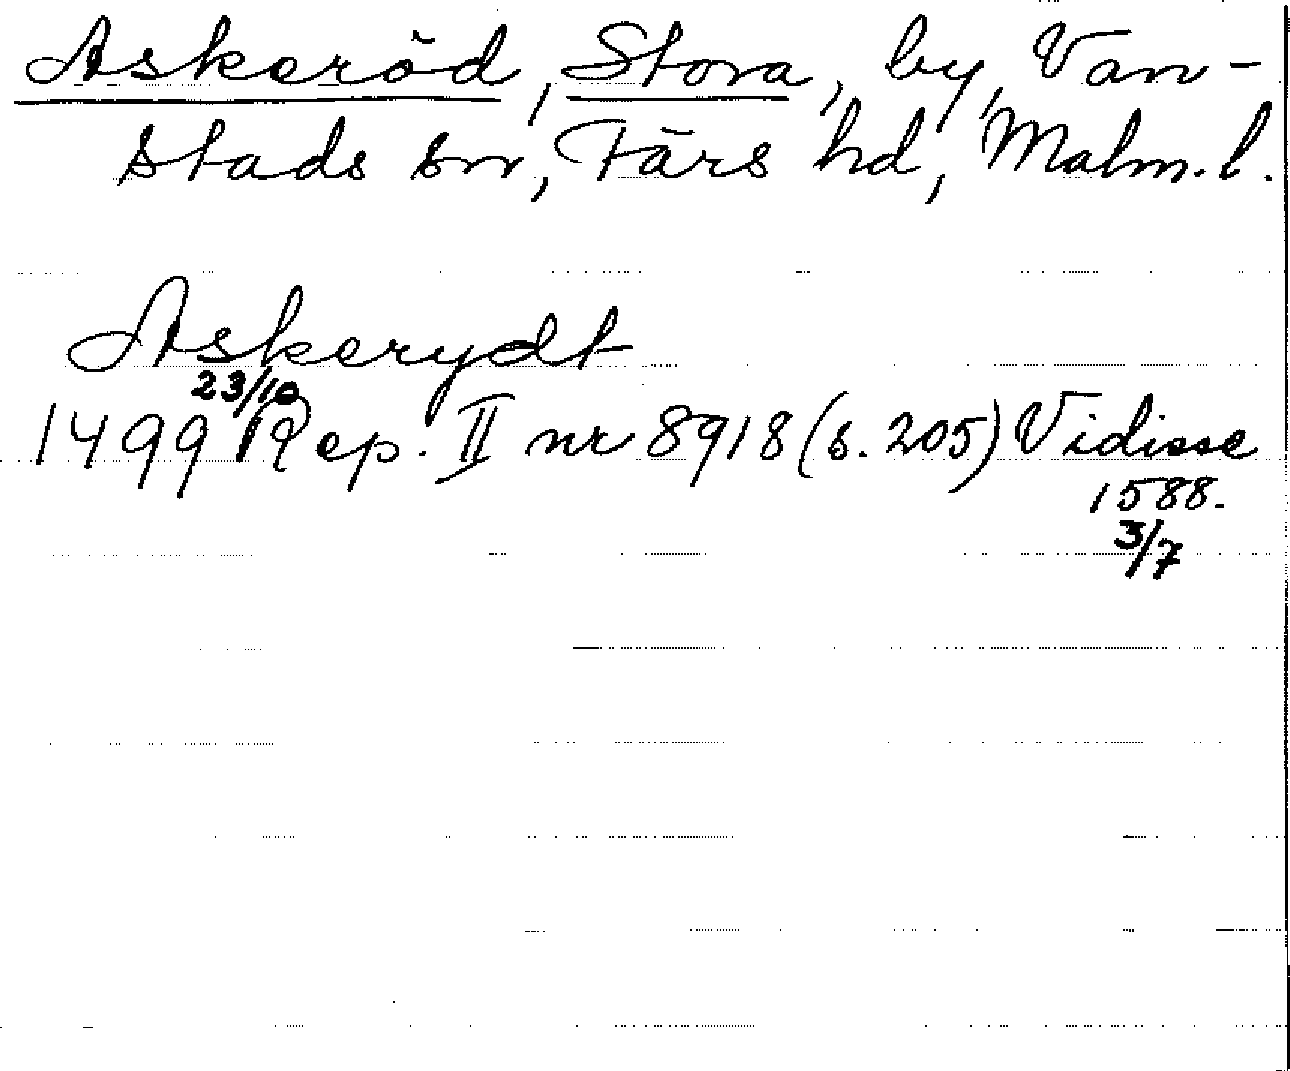 Askeröd, Stora, by, Van-
stads sn, Färs hd, Malm. l.
Askerydt
23/10
1499 Rep. II nr 8918 (s. 205) Vidisse
1588.
3/7